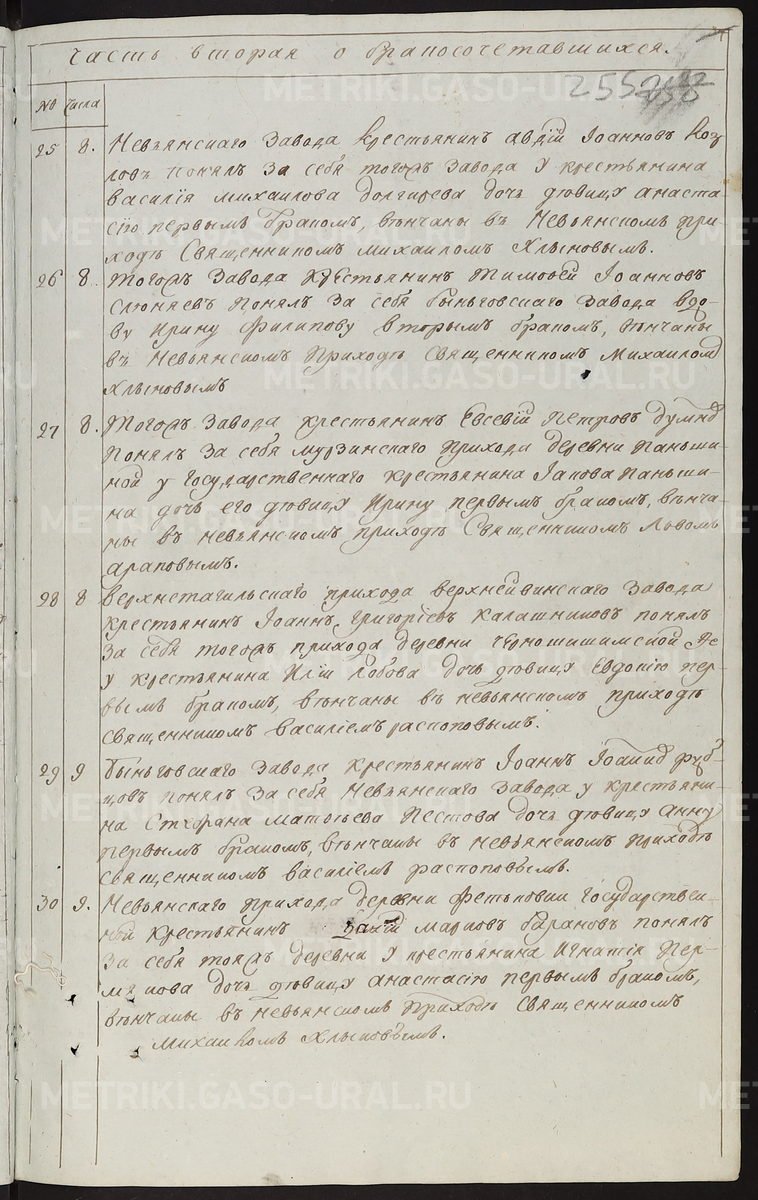 Часть вторая о бракосочетавшихся.
255
№ Числа
25 8. Невьянскаго завода крестьянинъ Авдій Іоанновъ Коз-
ловъ понялъ за себя тогожъ завода у крестьянина
Василія Михаилова Долгирева дочь девицу Анаста-
сію первымъ бракомъ, венчаны въ Невьянскомъ при-
ходѣ Священникомъ Михаиломъ Хлыновымъ.
26 8. Тогожъ завода крестьянинъ Тимофей Іоанновъ
понялъ за себя Быньговскаго завода вдо-
ву Ирину Филипову вторымъ бракомъ, венчаны
въ Невьянскомъ приходѣ Священникомъ Михаиломъ
Хлыновымъ
27 8. Тогожъ завода крестьянинъ Евсевій Петровъ
понялъ за себя Мурзинскаго прихода деревни Паньши-
ной у Государственнаго крестьянина Іакова Паньши-
на дочь его девицу Ирину первымъ бракомъ, венча-
ны въ Невьянскомъ приходѣ Священникомъ
Араповымъ.
28 8 Верхнетагильскаго прихода Верхнейвинскаго завода
крестьянинъ Іоаннъ Григоріевъ Калашниковъ понялъ
за себя тогожъ прихода деревни
у крестьянина Иліи дочь девицу Евдокію пер-
вымъ бракомъ, венчаны въ Невьянскомъ приходѣ
Священникомъ Василіемъ Распоповымъ.
29 9 Быньговскаго завода крестьянинъ Іоаннъ
понялъ за себя Невьянскаго завода у крестьяни-
на Стефана Матфеева Пестова дочь девицу Анну
первымъ бракомъ, венчаны въ Невьянскомъ приходѣ
Священникомъ Василіемъ Распоповымъ.
30 9. Невьянскаго прихода деревни Фетьковки Государствен-
ной крестьянинъ Марковъ Барановъ понялъ
за себя тояжъ деревни у крестьянина Игнатія Пер-
мякова дочь девицу Анастасію первымъ бракомъ,
венчаны въ Невьянскомъ приходѣ Священникомъ
Михаиломъ Хлыновымъ.
METRIKI.GASO-URAL.RU